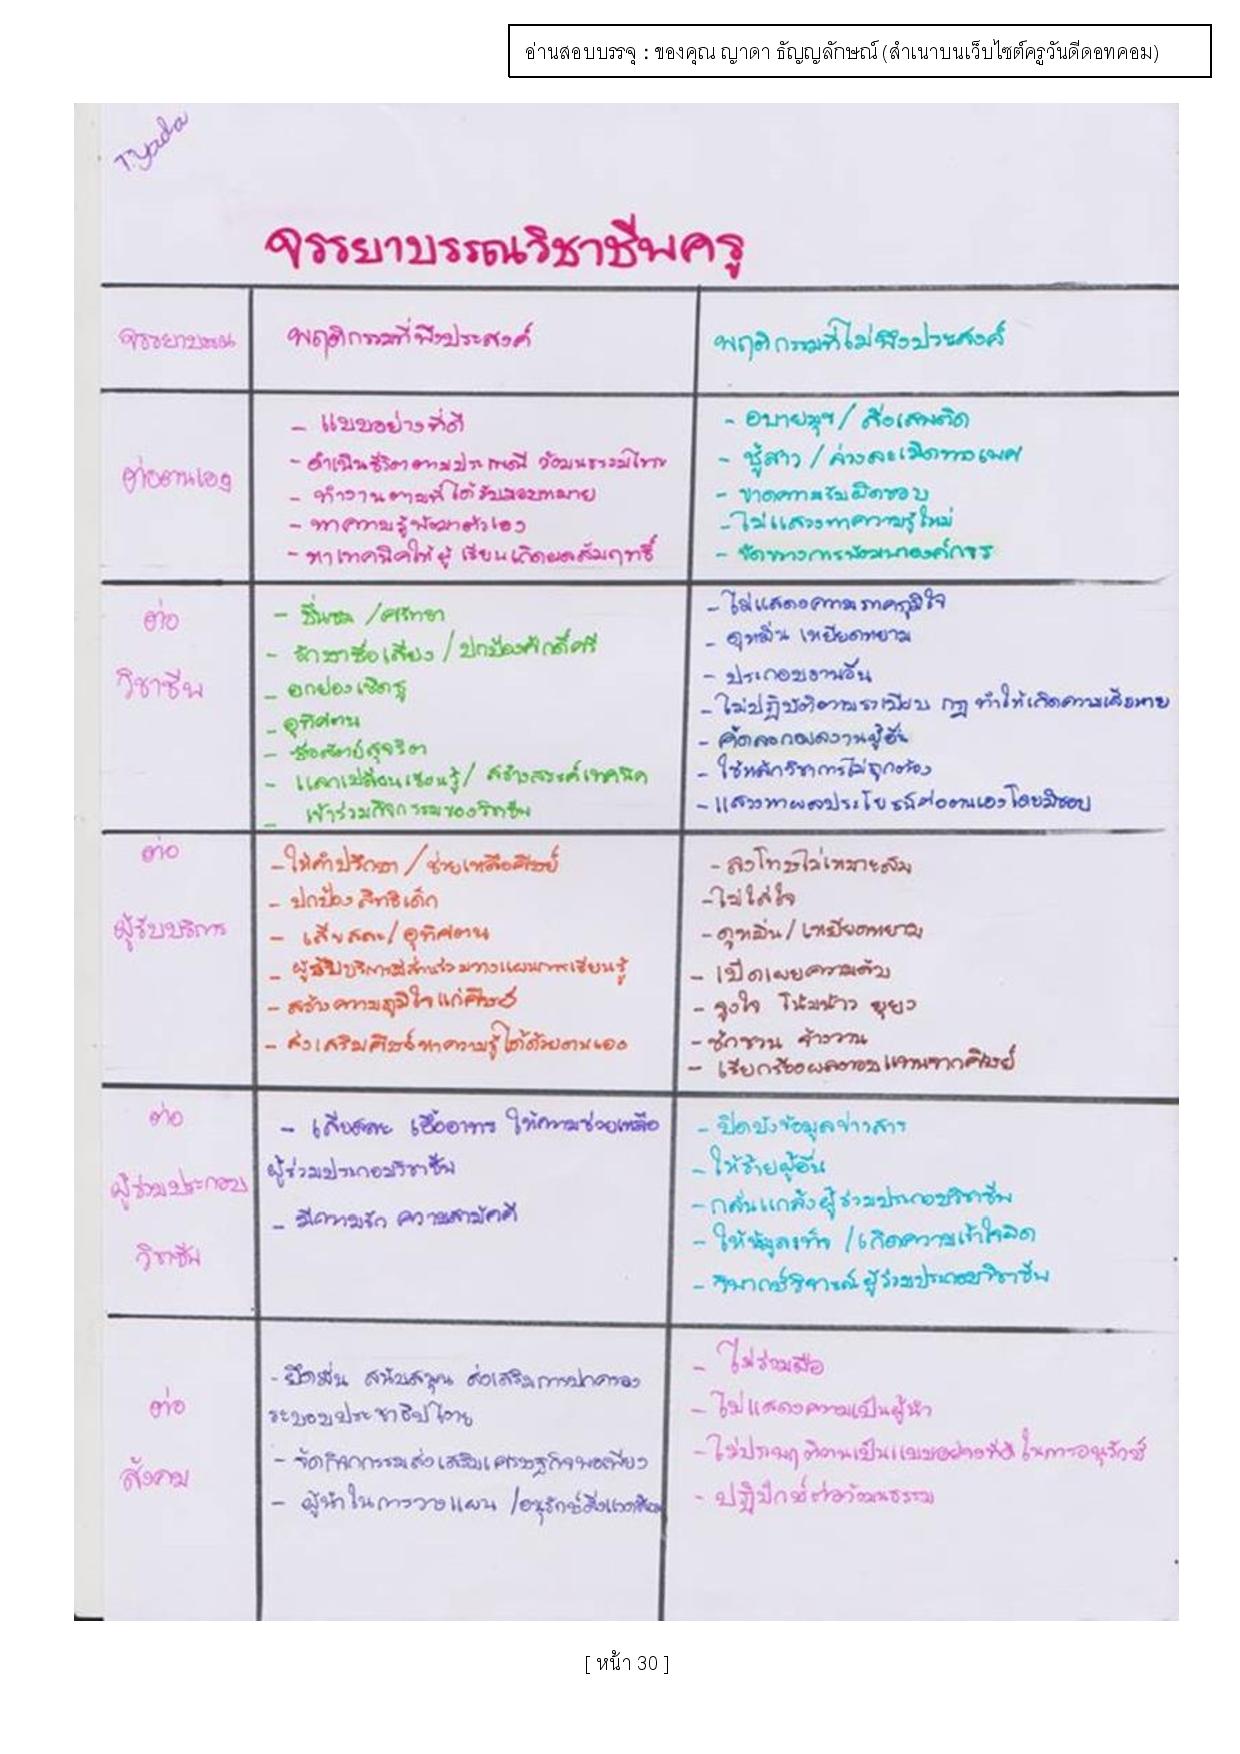 อ่านสอบบรรจุ : ของคุณ ญาดา ธัญญลักษณ์ (สำเนาบนเว็บไซต์ครูวันดีดอทคอม)
T.yada
จรรยาบรรณวิชาชีพครู
จรรยาบรรณ
พฤติกรรมที่พึงประสงค์
พฤติกรรมที่ไม่พึงประสงค์
ต่อตนเอง
- แบบอย่างที่ดี
- ดำเนินชีวิตตามประเพณี วัฒนธรรมไทย
- ทำงานตามที่ได้รับมอบหมาย
- หาความรู้พัฒนาตัวเอง
- หาเทคนิคให้ผู้เรียนเกิดผลสัมฤทธิ์
- อบายมุข / สิ่งเสพติด
- ชู้สาว / ล่วงละเมิดทางเพศ
- ขาดความรับผิดชอบ
- ไม่แสวงหาความรู้ใหม่
- ขัดขวางการพัฒนาองค์กร
ต่อ
วิชาชีพ
- ชื่นชม / ศรัทธา
- รักษาชื่อเสียง / ปกป้องศักดิ์ศรี
- ยกย่องเชิดชู
- อุทิศตน
- ซื่อสัตย์สุจริต
- แลกเปลี่ยนเรียนรู้ / สร้างสรรค์เทคนิค
- เข้าร่วมกิจกรรมของวิชาชีพ
- ไม่แสดงความภาคภูมิใจ
- ดูหมิ่น เหยียดหยาม
- ประกอบงานอื่น
- ไม่ปฏิบัติตามระเบียบ กฎ ทำให้เกิดความเสียหาย
- คัดลอกผลงานผู้อื่น
- ใช้หลักวิชาการไม่ถูกต้อง
- แสวงหาผลประโยชน์ต่อตนเองโดยมิชอบ
ต่อ
ผู้รับบริการ
- ให้คำปรึกษา / ช่วยเหลือศิษย์
- ปกป้องสิทธิเด็ก
- เสียสละ / อุทิศตน
- ผู้รับบริการมีส่วนร่วมวางแผนการเรียนรู้
- สร้างความภูมิใจแก่ศิษย์
- ส่งเสริมศิษย์หาความรู้ได้ด้วยตนเอง
- ลงโทษไม่เหมาะสม
- ไม่ใส่ใจ
- ดูหมิ่น / เหยียดหยาม
- เปิดเผยความลับ
- จูงใจ โน้มน้าว ยุยง
- ชักชวน จ้างวาน
- เรียกร้องผลตอบแทนจากศิษย์
ต่อ
ผู้ร่วมประกอบ
วิชาชีพ
- เสียสละ เอื้ออาทร ให้ความช่วยเหลือ
ผู้ร่วมประกอบวิชาชีพ
- มีความรัก ความสามัคคี
- ปิดบังข้อมูลข่าวสาร
- ให้ร้ายผู้อื่น
- กลั่นแกล้งผู้ร่วมประกอบวิชาชีพ
- ให้ข้อมูลเท็จ / เกิดความเข้าใจผิด
- วิพากษ์วิจารณ์ผู้ร่วมประกอบวิชาชีพ
ต่อ
สังคม
- ยึดมั่น สนับสนุน ส่งเสริมการปกครอง
ระบอบประชาธิปไตย
- จัดกิจกรรมส่งเสริมเศรษฐกิจพอเพียง
- ผู้นำในการวางแผน / อนุรักษ์สิ่งแวดล้อม
- ไม่ร่วมมือ
- ไม่แสดงความเป็นผู้นำ
- ไม่ประพฤติตนเป็นแบบอย่างที่ดี ในการอนุรักษ์
- ปฏิปักษ์ต่อวัฒนธรรม
[ หน้า 30 ]